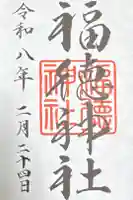 福徳神社
令和八年 二月二十四日
福徳神社